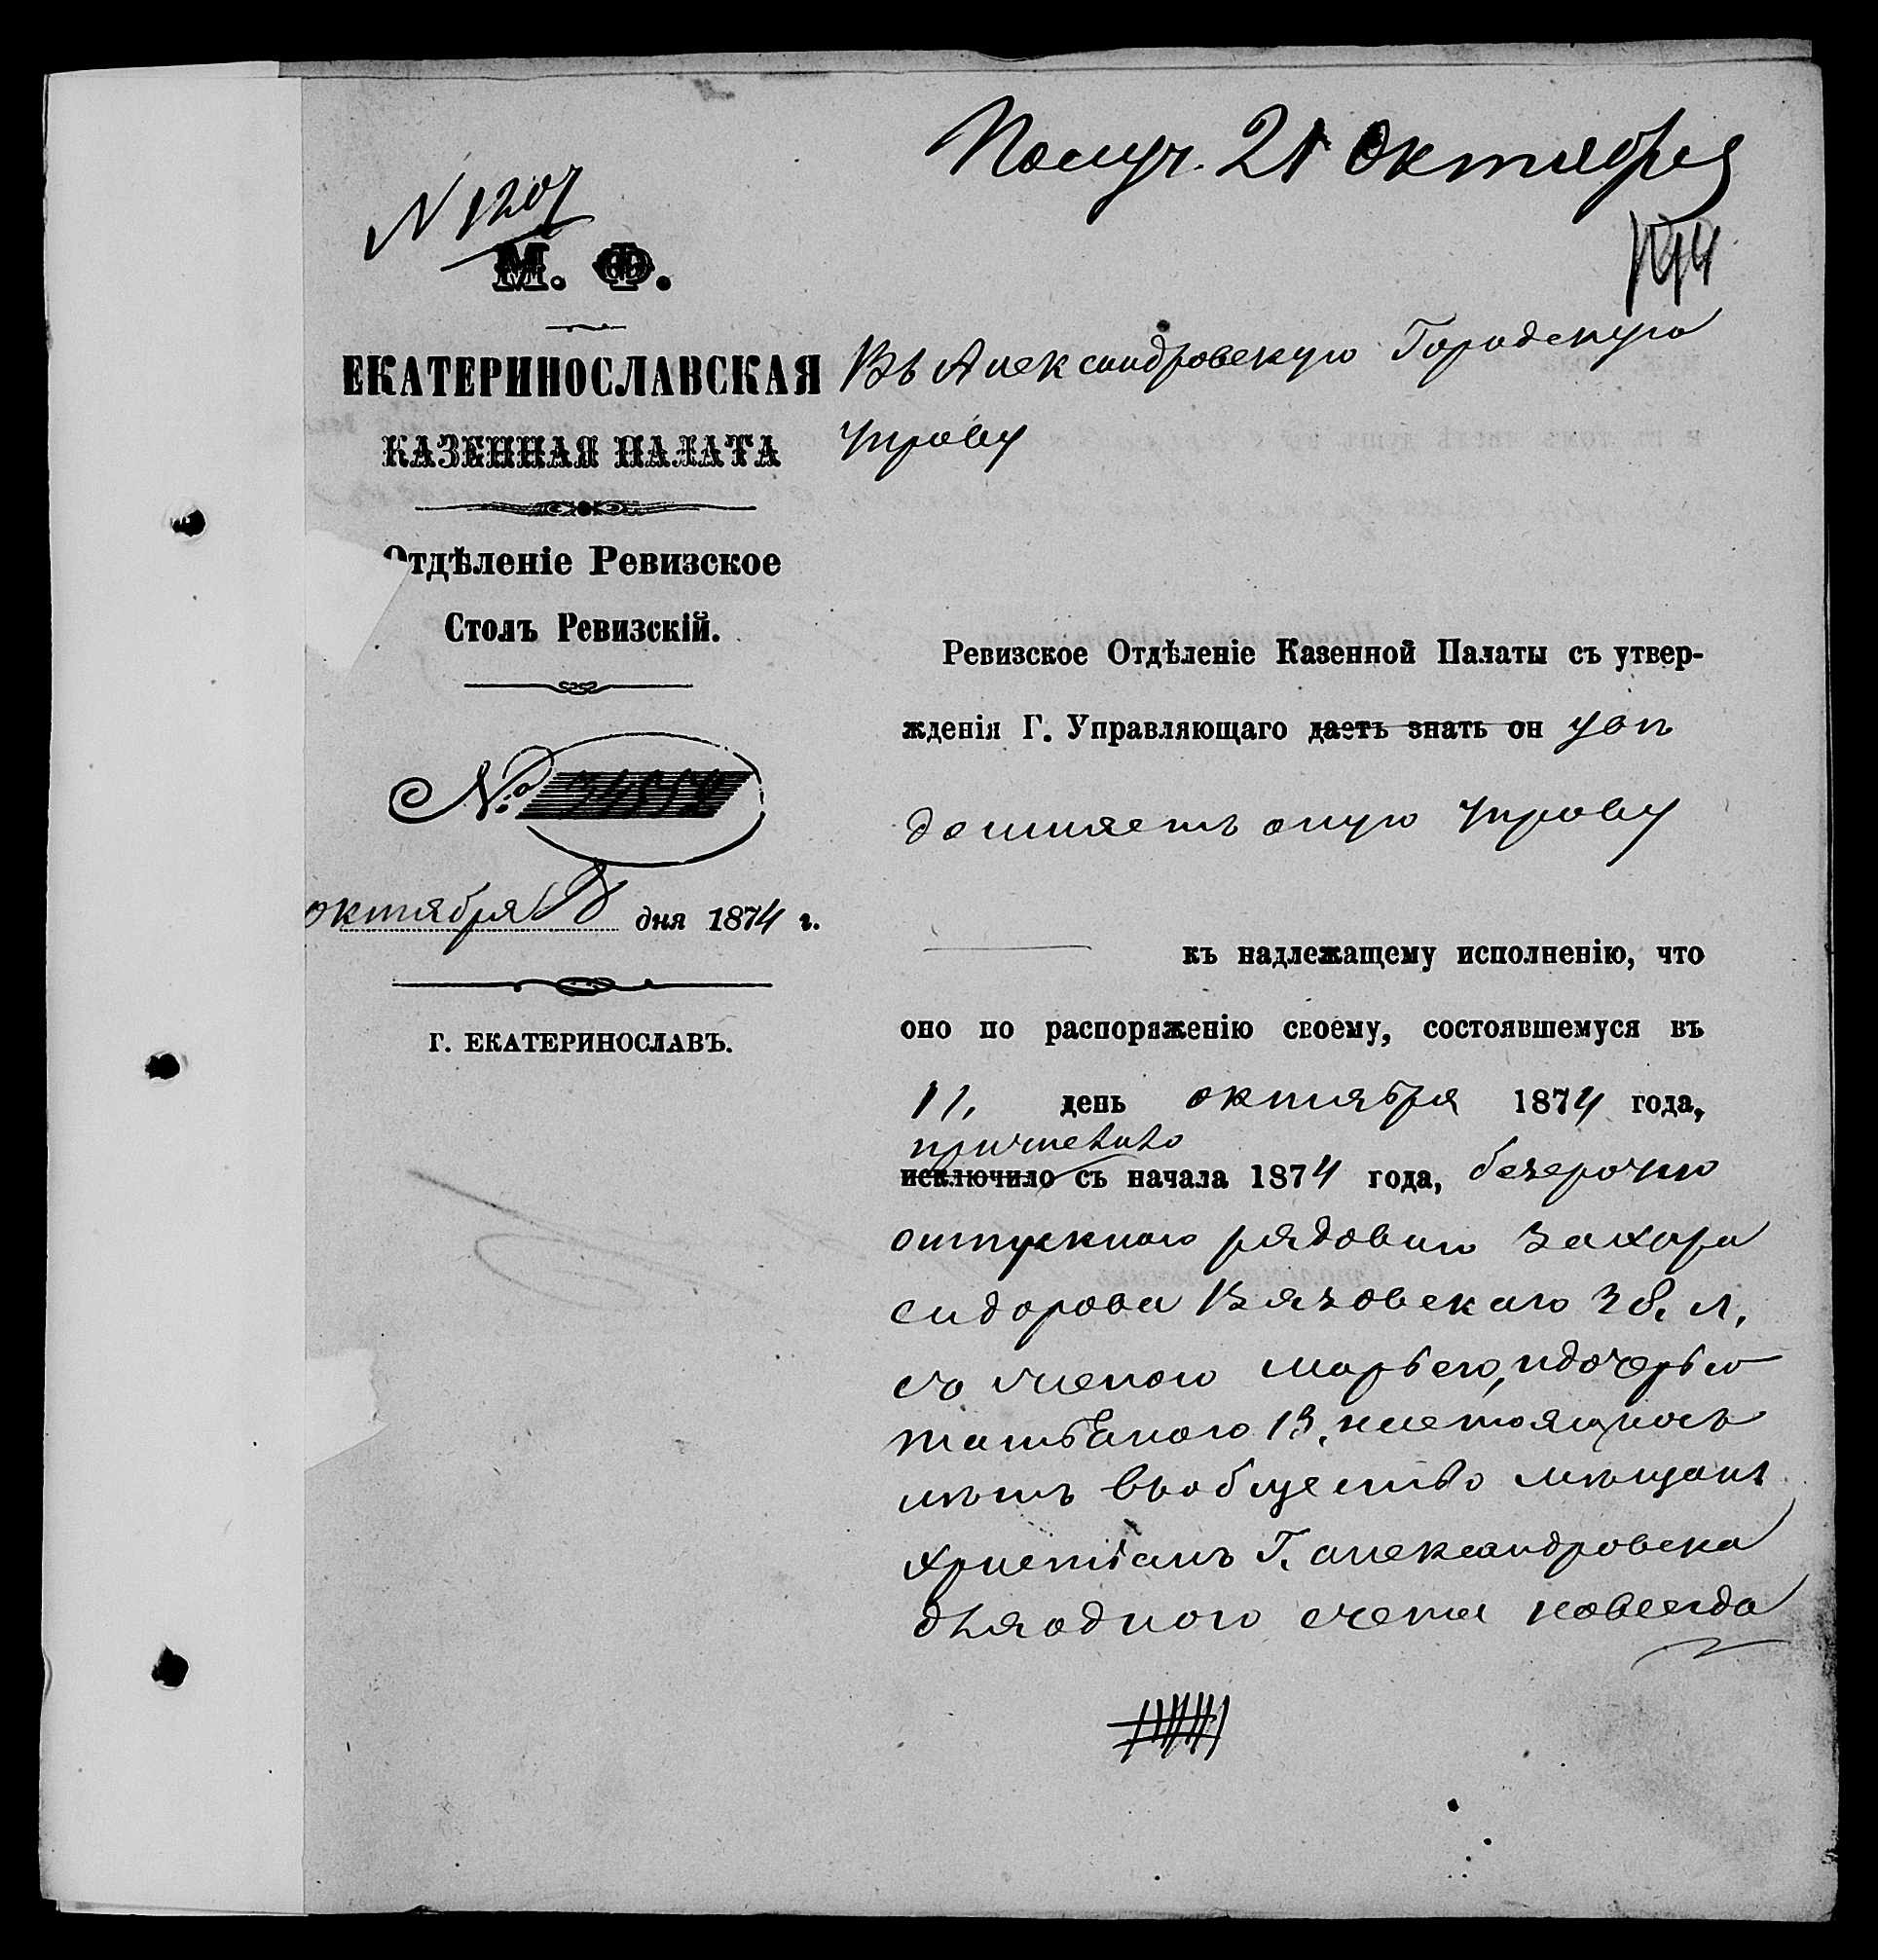 Получ. 21 Октября
N 1207
М. Ф.
ЕКАТЕРИНОСЛАВСКАЯ
КАЗЕННАЯ ПАЛАТА
Отдѣленіе Ревизское
Столъ Ревизскій.
№
октября 18 дня 1874 г.
Г. ЕКАТЕРИНОСЛАВЪ.
Въ Александровскую Городскую
Управу
Ревизское Отдѣленіе Казенной Палаты съ утвер-
жденія Г. Управляющаго даетъ знать он увѣ
домляетъ оную Управу
къ надлежащему исполненію, что
оно по распоряженію своему, состоявшемуся въ
11, день октября 1874 года,
причислило
исключило съ начала 1874 года, безсрочно
отпускнаго рядоваго Захара
Сидорова Вязовскаго 38, л,
съ женою Марьею, и дочерью
Татьяною 13, неимеющаго
лѣтъ въ общество мѣщанъ
христіанъ Г. Александровска
для одного счета навсегда